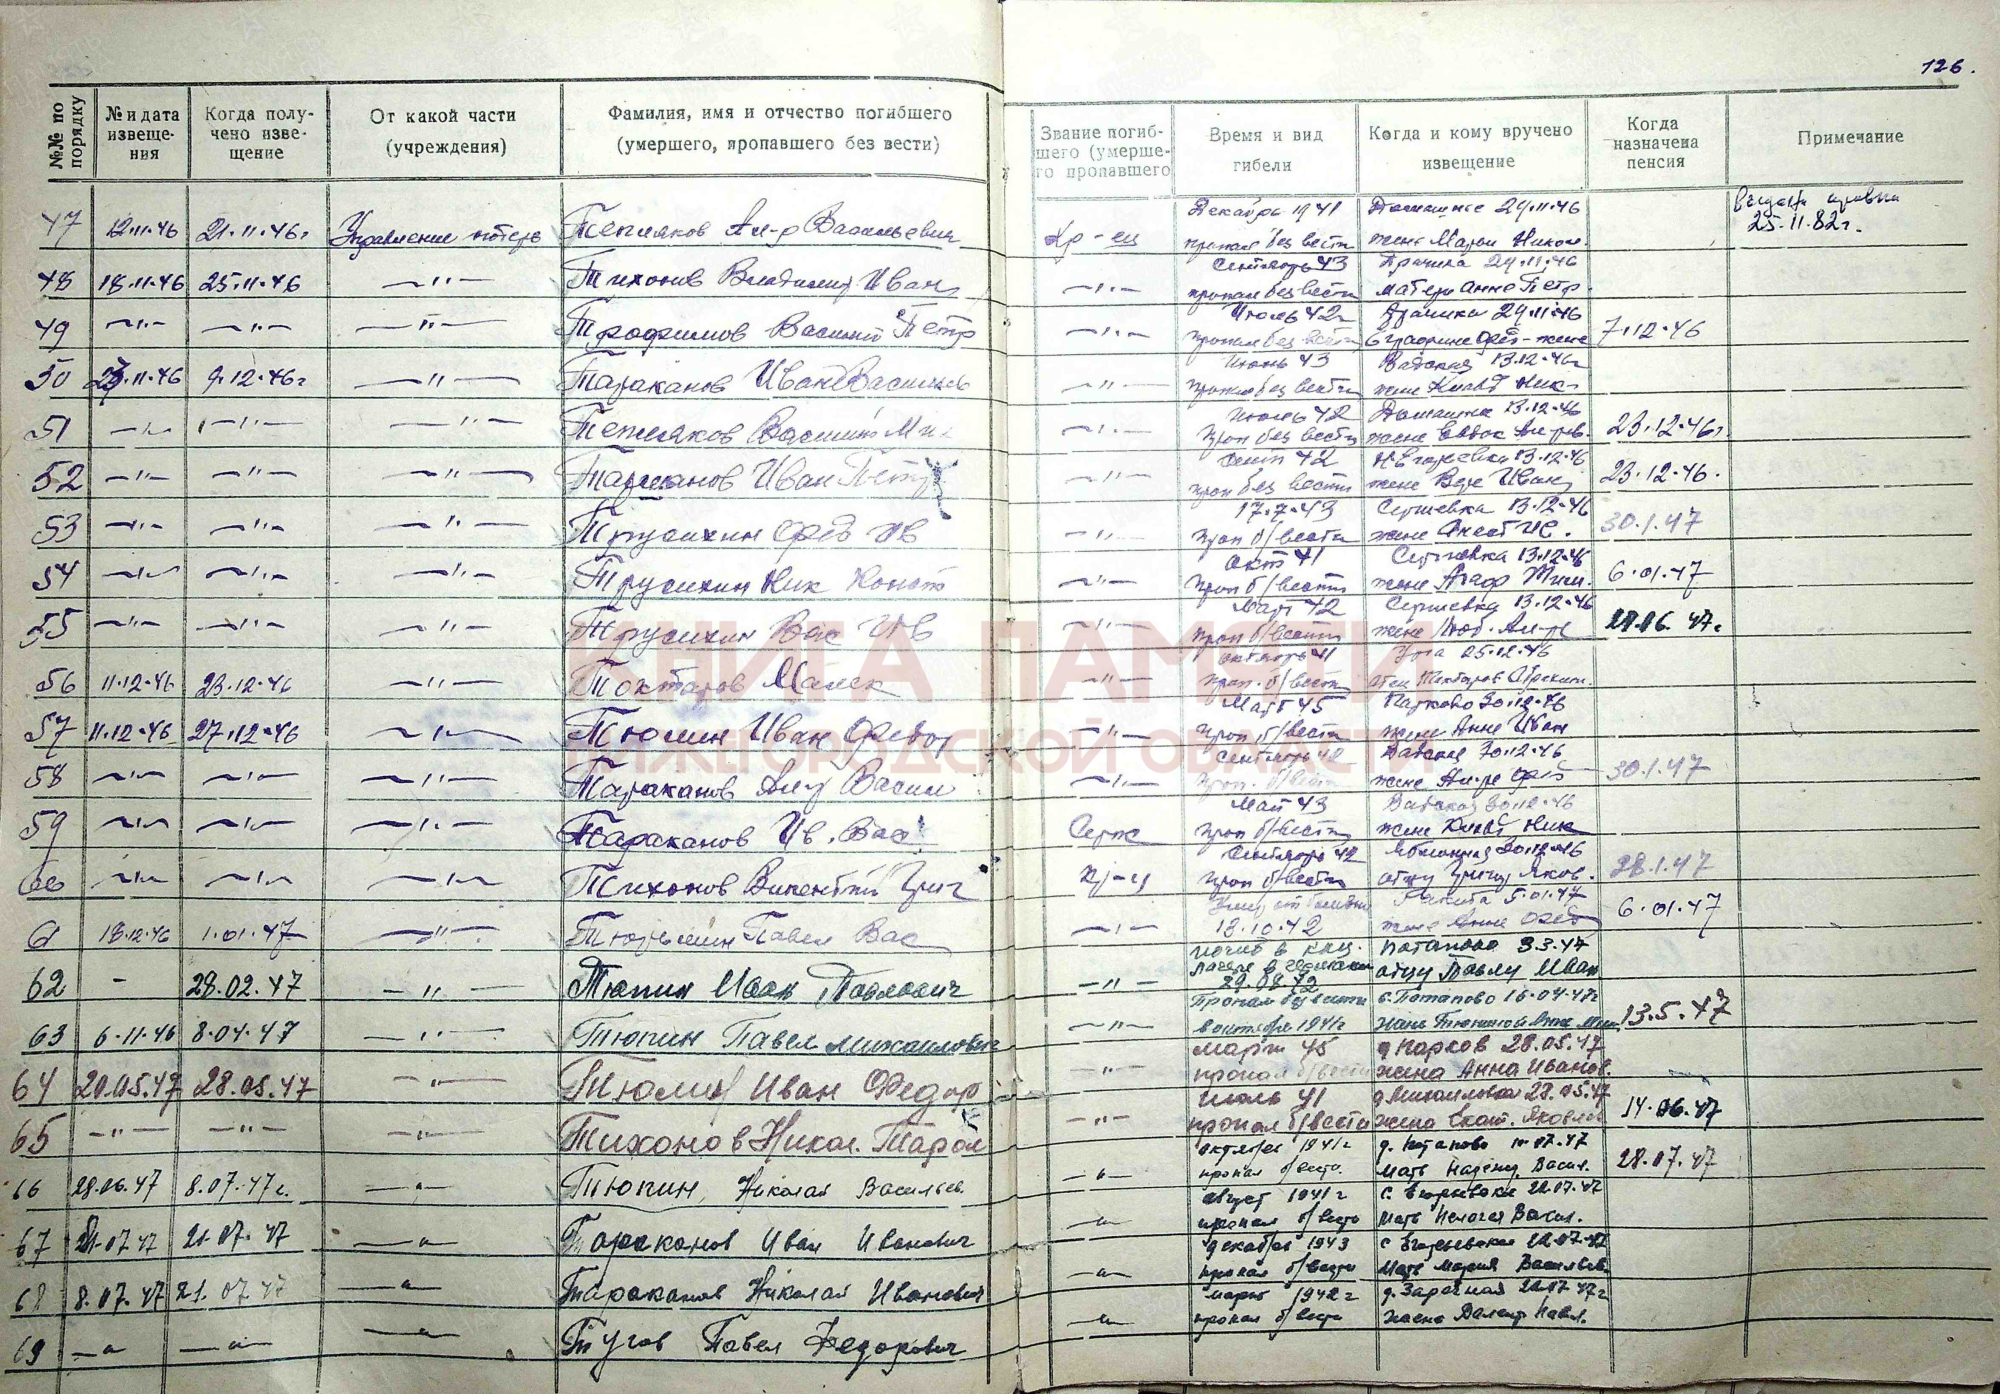 126.
№№ по порядку
№ и дата извеще-ния
Когда полу-чено изве-щение
От какой части (учреждения)
Фамилия, имя и отчество погибшего (умершего, пропавшего без вести)
Звание погиб-шего (умерше-го пропавшего
Время и вид гибели
Когда и кому вручено извещение
Когда назначена пенсия
Примечание
47 12.11.46 21.11.46г Управление потерь Тепляков Ал-р Васильевич Кр-ец Декабрь 1941 пропал без вести Домашнее 29.11.46 жене Марии Никол. 25.11.82г.
48 18.11.46 25.11.46 —"— Тихонов Владимир Иван —"— Сентябрь 43 пропал без вести 29.11.46 матери Анне Петр.
49 —"— —"— —"— Трофимов Василий Петр —"— Июль 42г пропал без вести 29.11.46 жене 7.12.46
50 11.46 9.12.46г —"— Тараканов Иван Васильев —"— Июнь 43 пропал без вести Вадская 13.12.46г жене Клавд Ник
51 —"— —"— —"— Тепляков Василий Ми —"— Июль 42 проп без вести 13.12.46 жене Евдок Ан-рев. 23.12.46г.
52 —"— —"— —"— Тараканов Иван Петр —"— Сент 42 проп без вести 13.12.46 жене Вере Иван 23.12.46.
53 —"— —"— —"— Трусихин Фед Ив —"— 17.7.43 проп б/вести Сергиевка 13.12.46 жене 30.1.47
54 —"— —"— —"— Трусихин Ник Конст —"— Окт 41 проп б/вести Сергиевка 13.12.46 жене Агаф Тим. 6.01.47
55 —"— —"— —"— Трусихин Вас Ив —"— Март 42 проп б/вести Сергиевка 13.12.46 жене Люб. Ан-ре 47г
56 11.12.46 23.12.46 —"— Токтаров Малек —"— октябрь 41 проп. б/вести 25.12.46 отцу Токтаров
57 11.12.46 27.12.46 —"— Тюлин Иван Федор —"— Март 45 проп б/вести Парково 30.12.46 жене Анне Иван
58 —"— —"— —"— Тараканов Алек Васил —"— Сентябрь 42 проп. б/вести Вадская 30.12.46 жене Ал-ре Фед 30.1.47
59 —"— —"— —"— Тараканов Ив. Вас. Серж Май 43 проп б/вести Вадская 30.12.46 жене Клавд Ник
60 —"— —"— —"— Тихонов Викентий Григ Кр-ц Сентябрь 42 проп б/вести Яблонная 30.12.46 отцу Григор Яков. 28.1.47
61 18.12.46 1.01.47 —"— Павел Вас —"— 13.10.42 Ракита 5.01.47 жене Анне Фед 6.01.47
62 - 28.02.47 —"— Тюпин Иван Павлович —"— погиб в конц. лагере в Германии 29.08.42 Потапово 3.3.47 отцу Павлу Иван
63 6.11.46 8.04.47 —"— Тюпин Павел Михайлович —"— Пропал без вести в октябре 1941г с.Потапово 16.04.47г жене Тюпиной Анне Мих. 13.5.47
64 20.05.47 28.05.47 —"— Тюлин Иван Федор —"— март 45 пропал б/вести д Парков 28.05.47 жена Анна Иванов.
65 —"— —"— —"— Тихонов Никол. Тарас —"— июль 41 пропал б/вести д Михайловка 28.05.47 жена Екат. Яковлев 14.06.47
66 28.06.47 8.07.47г. —"— Тюпин Николай Васильев. —"— октябрь 1941г пропал б/вести. д. Потапово 10.07.47 мать Надежд. Васил. 28.07.47
67 21.07.47 21.07.47 —"— Тараканов Иван Иванович —"— август 1941г пропал б/вести 22.07.47 мать Пелагея Васил.
68 8.07.47 21.07.47 —"— Тараканов Николай Иванович —"— декабрь 1943 пропал б/вести 22.07.47 мать Мария Васильев.
69 —"— —"— —"— Тугов Павел Федорович —"— март 1942г пропал б/вести д. Заречная 22.07.47г жена Валент Павл.
КНИГА ПАМЯТИ
НИЖЕГОРОДСКОЙ ОБЛАСТИ